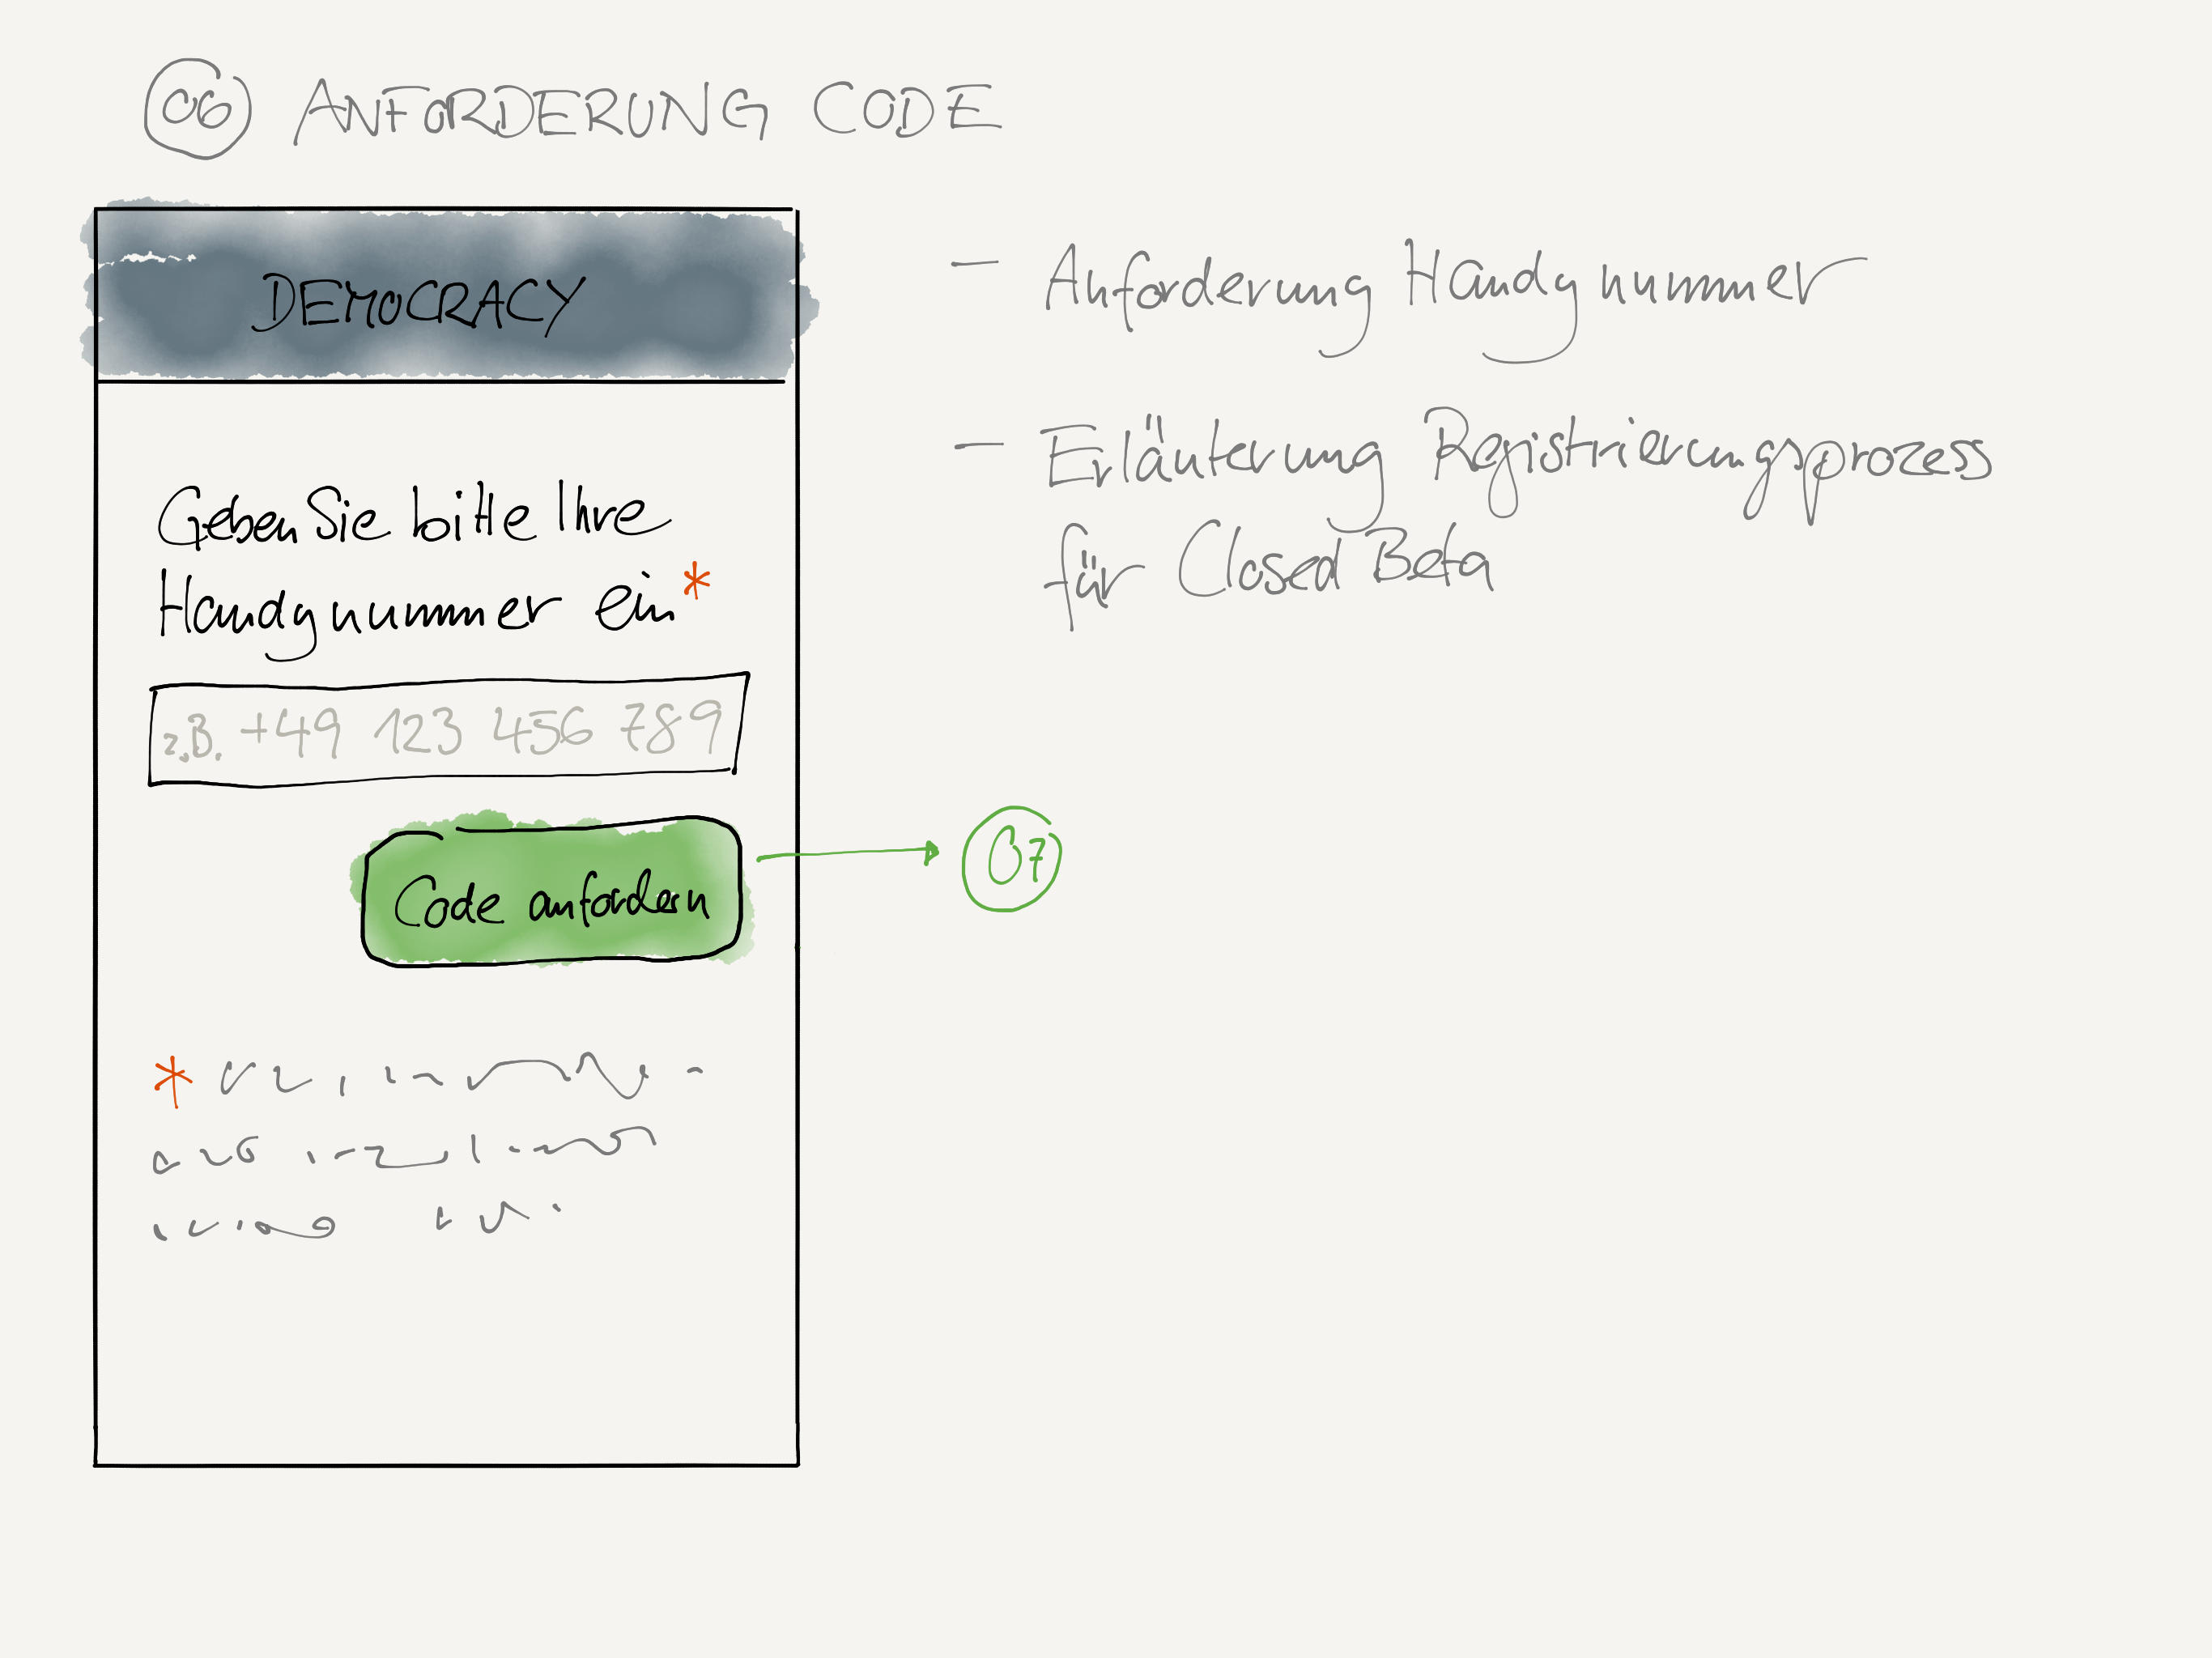 06 ANFORDERUNG CODE
DEMOCRACY
Geben Sie bitte Ihre
Handynummer ein*
z.B. +49 123 456 789
Code anfordern
07
*
- Anforderung Handynummer
- Erläuterung Registrierungsprozess
für Closed Beta